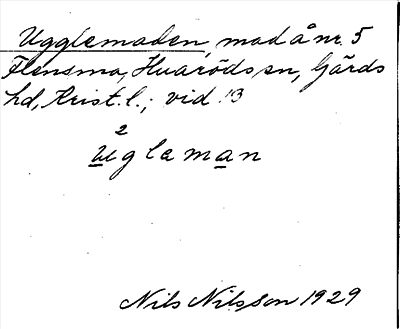 Ugglemaden, mad å nr. 5
Flensma, Huaröds sn, Gärds
hd, Krist. l.; vid 13
2
uglaman
Nils Nilsson 1929